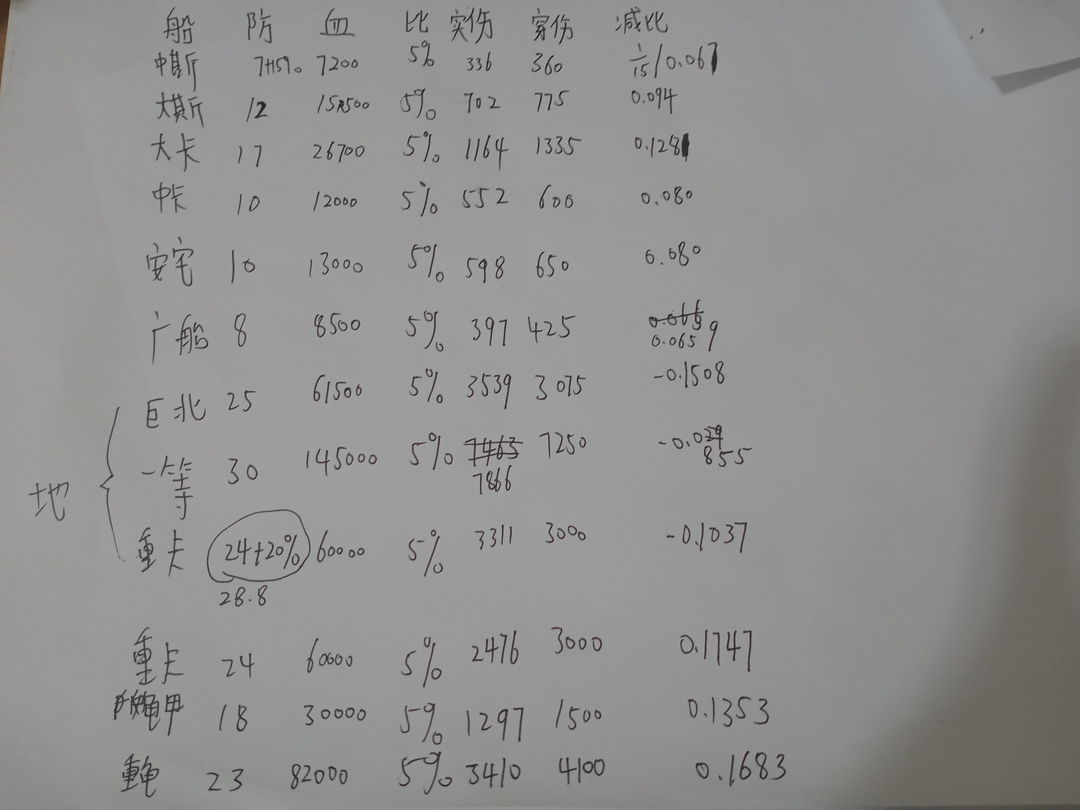 船 防 血 比 实伤 穿伤 减比
中斯 7+15% 7200 5% 336 360 1/15/0.067
大斯 12 15500 5% 702 775 0.094
大卡 17 26700 5% 1164 1335 0.128
中卡 10 12000 5% 552 600 0.080
安宅 10 13000 5% 598 650 0.080
广船 8 8500 5% 397 425 0.0659
巨北 25 61500 5% 3539 3075 -0.1508
地 一等 30 145000 5% 7463 7866 7250 -0.0855
重卡 24+20% 28.8 60000 5% 3311 3000 -0.1037
重卡 24 60000 5% 2476 3000 0.1747
龟甲 18 30000 5% 1297 1500 0.1353
重龟 23 82000 5% 3410 4100 0.1683